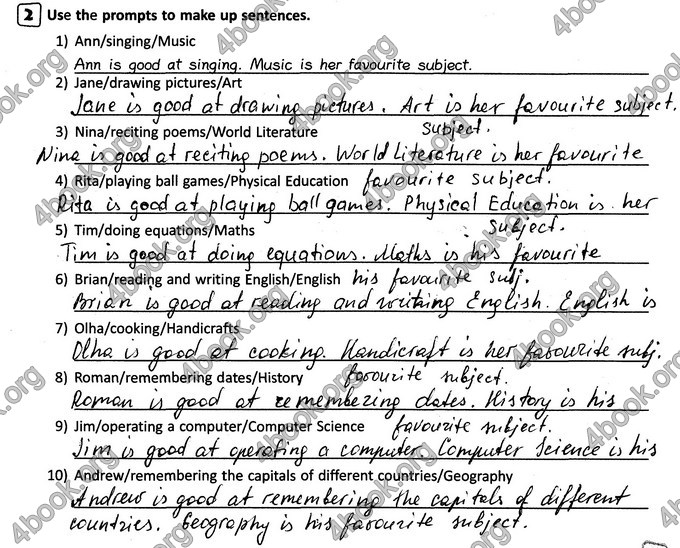 2 Use the prompts to make up sentences.
1) Ann/singing/Music
Ann is good at singing. Music is her favourite subject.
2) Jane/drawing pictures/Art
Jane is good at drawing pictures. Art is her favourite subject.
3) Nina/reciting poems/World Literature subject.
Nina is good at reciting poems. World Literature is her favourite
4) Rita/playing ball games/Physical Education favourite subject.
Rita is good at playing ball games. Physical Education is her
5) Tim/doing equations/Maths subject.
Tim is good at doing equations. Maths is his favourite
6) Brian/reading and writing English/English his favourite subj.
Brian is good at reading and writing English. English is
7) Olha/cooking/Handicrafts
Olha is good at cooking. Handicraft is her favourite subj.
8) Roman/remembering dates/History favourite subject.
Roman is good at remembering dates. History is his
9) Jim/operating a computer/Computer Science favourite subject.
Jim is good at operating a computer. Computer Science is his
10) Andrew/remembering the capitals of different countries/Geography
Andrew is good at remembering the capitals of different
countries. Geography is his favourite subject.
4book.org